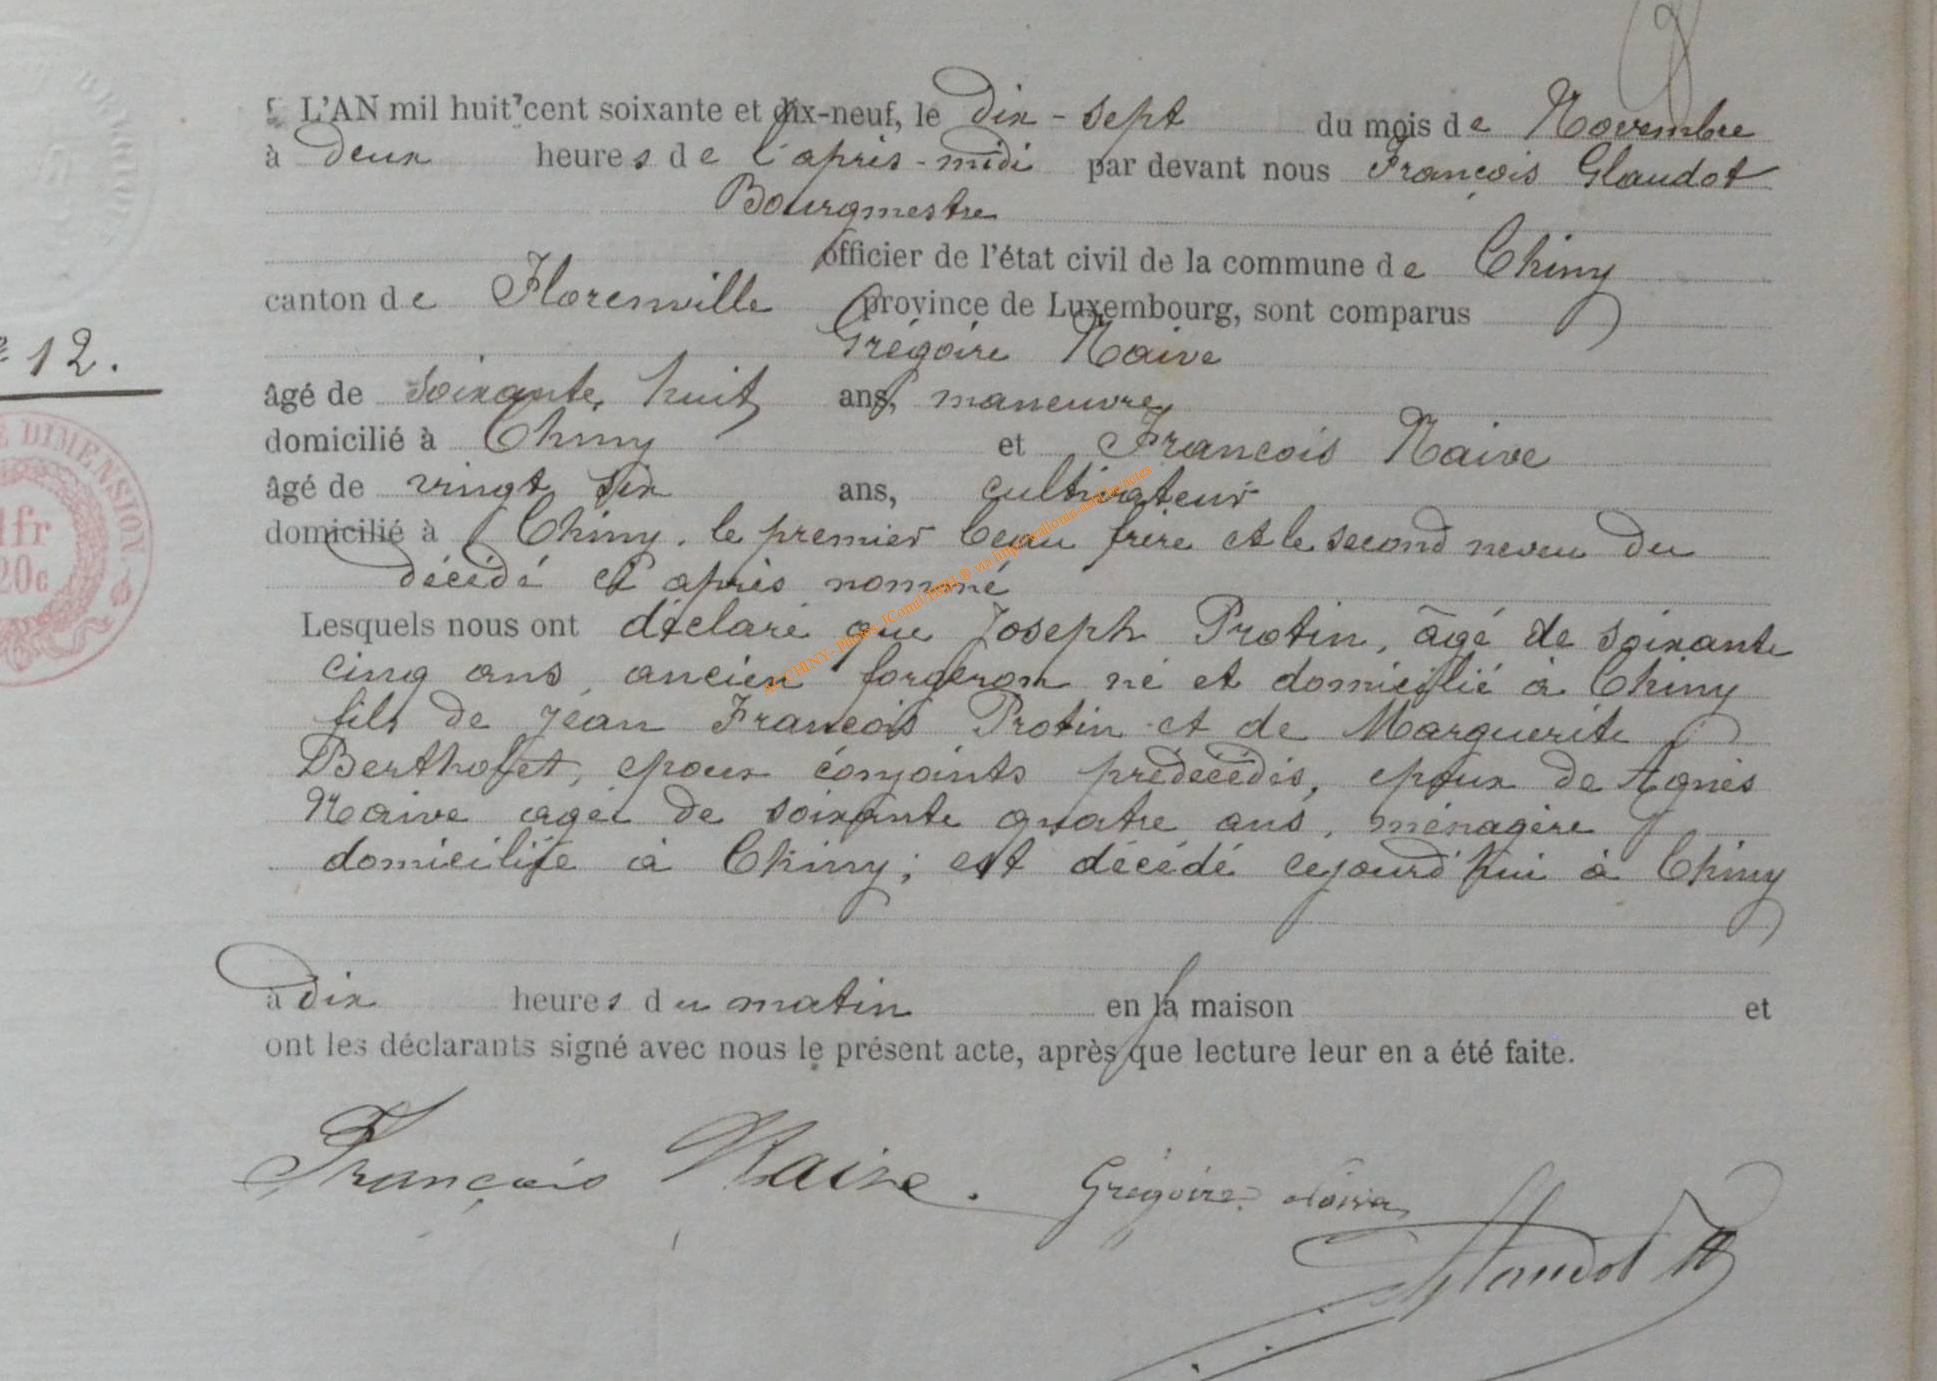 L'AN mil huit cent soixante et dix-neuf, le dix-sept du mois de Novembre
à deux heures de l'après-midi par devant nous François Glaudot
Bourgmestre
officier de l'état civil de la commune de Chiny
canton de Florenville province de Luxembourg, sont comparus
Grégoire Naive
N° 12.
âgé de soixante huit ans, maneuvre
domicilié à Chiny et François Naive
âgé de vingt six ans, cultivateur
domicilié à Chiny. le premier beau frère et le second neveu du
décédé ci après nommé
Lesquels nous ont déclaré que Joseph Protin, âgé de soixante
cinq ans, ancien forgeron né et domicilié à Chiny
fils de Jean François Protin et de Marguerite
Bertholet, epoux conjoints prédécédés, epoux de Agnès
Naive agée de soixante quatre ans, ménagère
domiciliée à Chiny; est décédé cejourd'hui à Chiny
à dix heures du matin en la maison et
ont les déclarants signé avec nous le présent acte, après que lecture leur en a été faite.
François Naive. Grégoire Naive
Glaudot
DIMENSION
1fr
20c